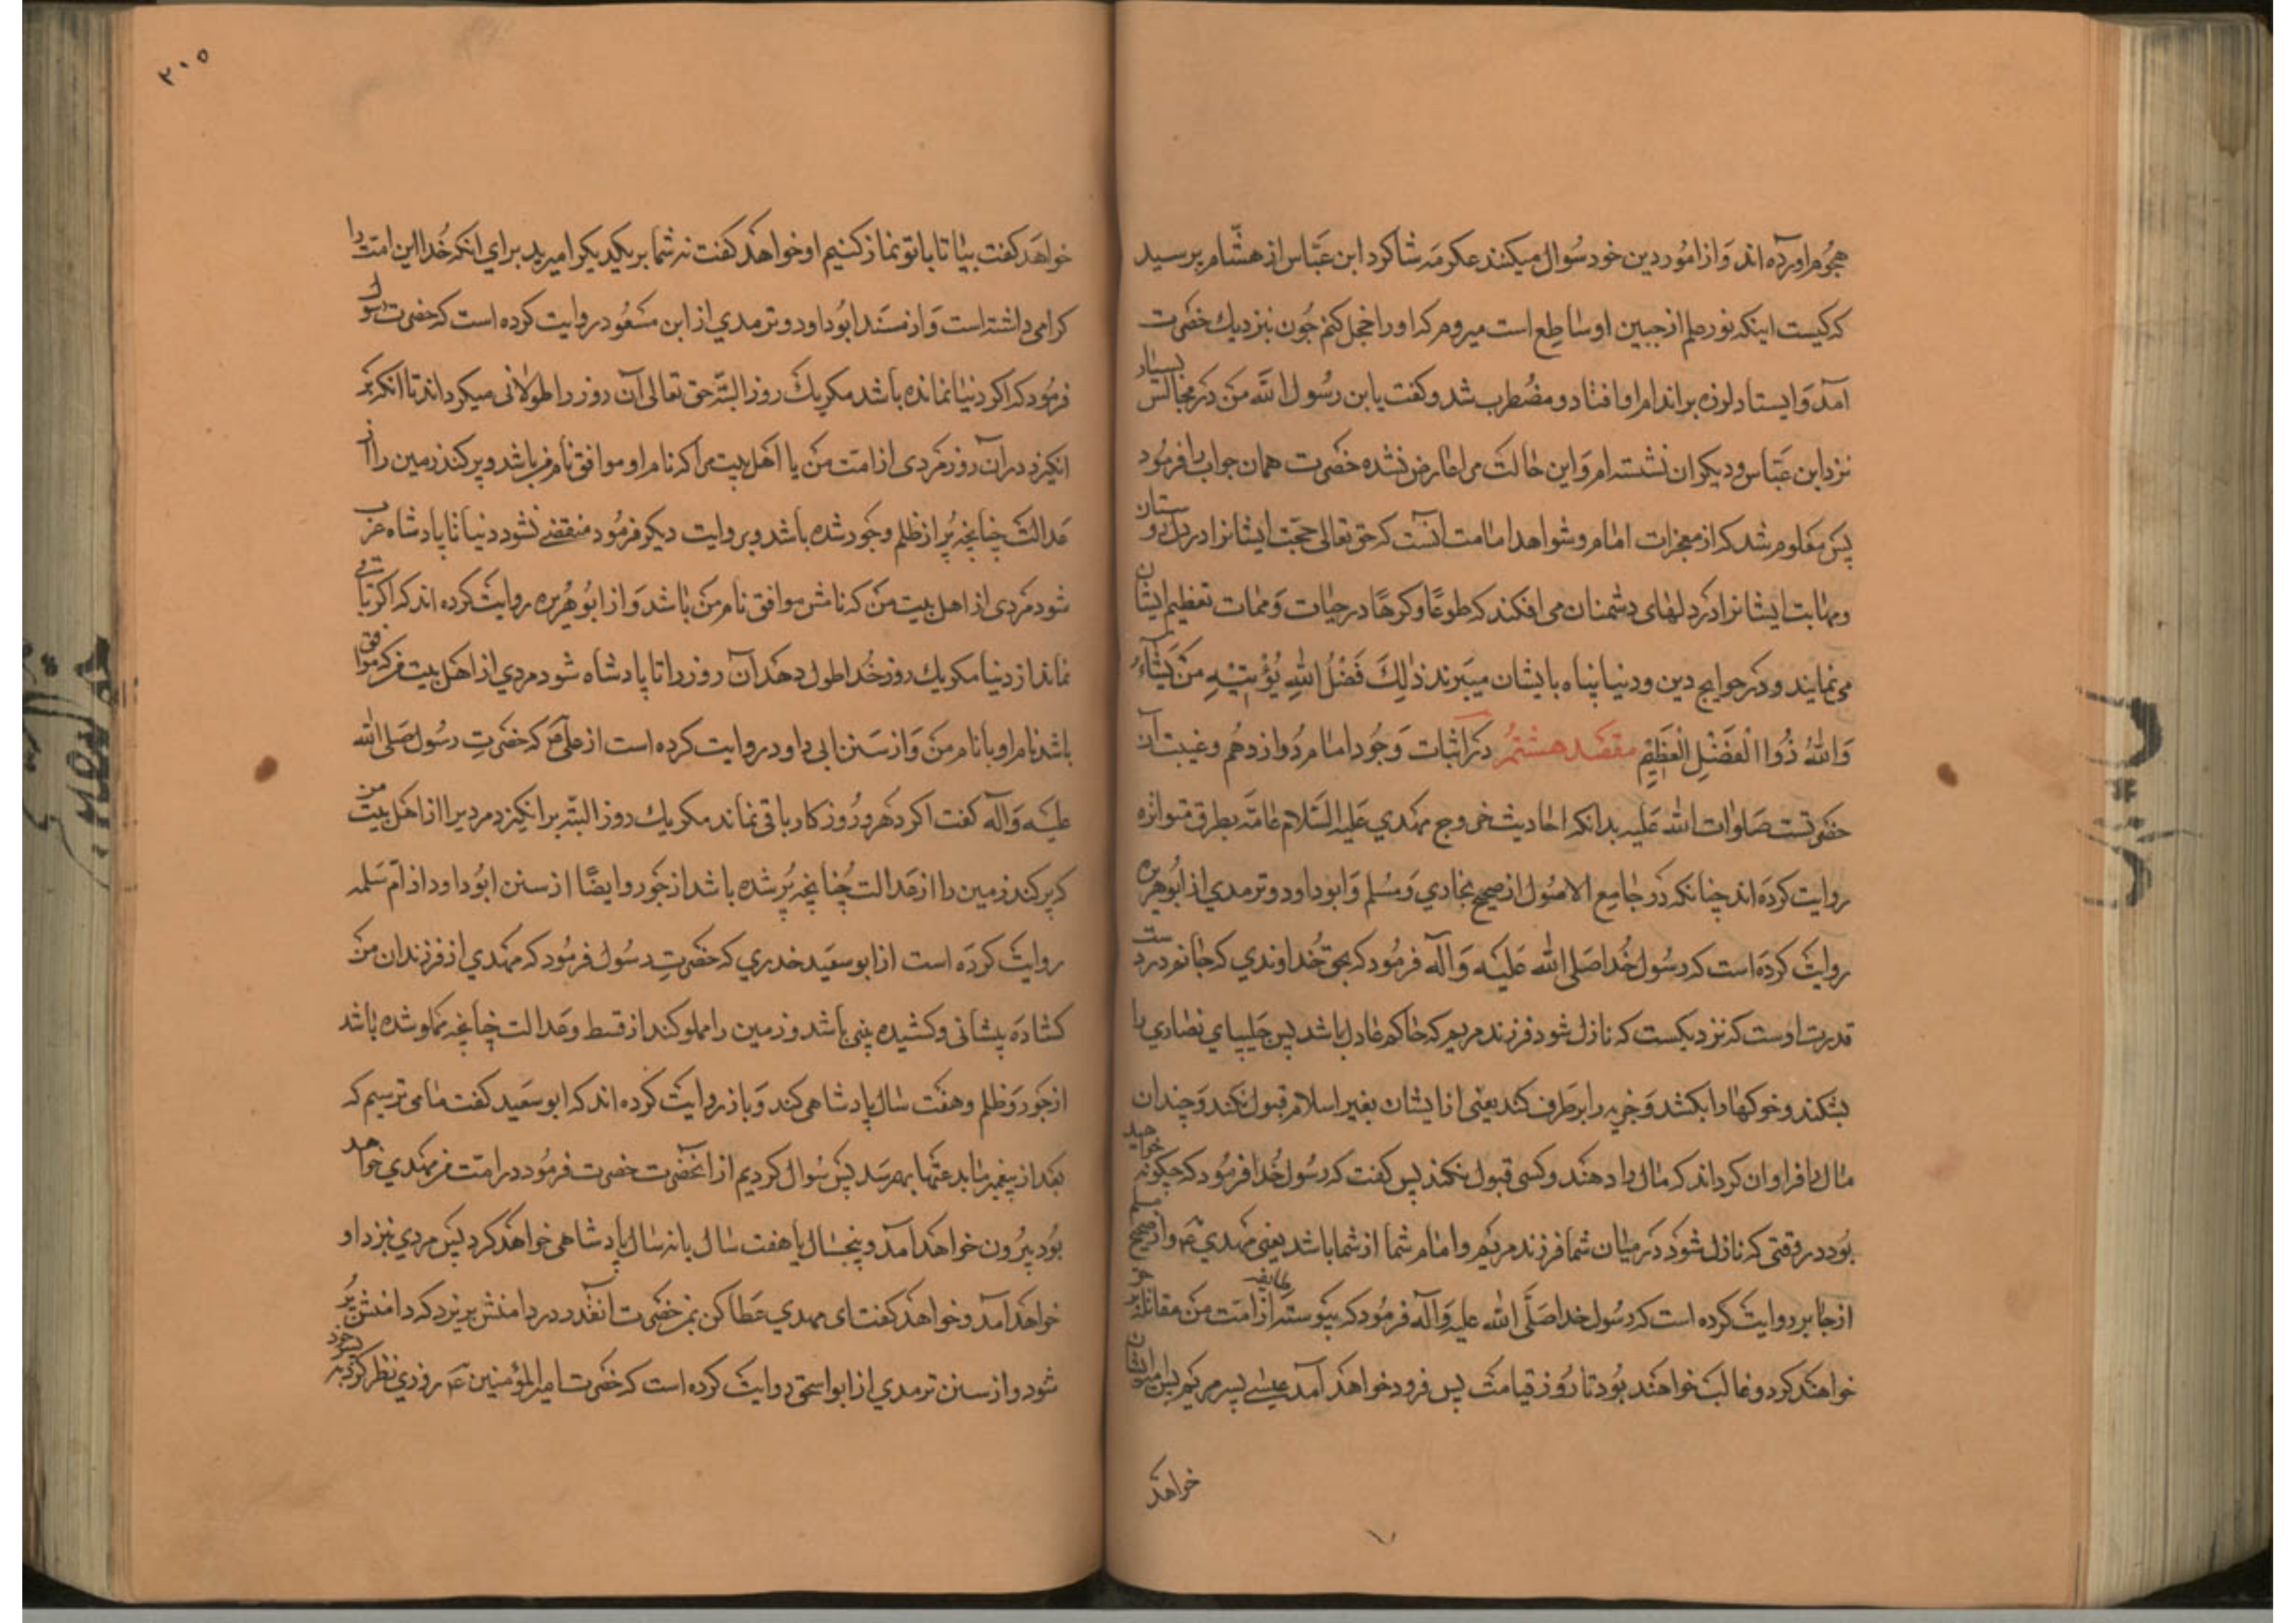 هجوم آورده اند و از امور دین خود سوال میکنند عکرمه شاکرد ابن عباس از هشام پرسید
که کیست اینکه نور علم از جبین او ساطع است میروم که او را خجل کنم چون بنزدیک حضرت
آمد و ایستاد لرزه بر اندام او افتاد و مضطرب شد و کفت یا بن رسول الله من در مجالس بسیار
نزد ابن عباس و دیکران نشسته ام و این حالت مرا عارض نشده حضرت همان جواب را فرمود
پس معلوم شد که از معجزات امام و شواهد امامت آنست که حق تعالی محبت ایشانرا در دل دوستان
و مهابت ایشانرا در دلهای دشمنان می افکند که طوعًا و کرهًا در حیات و ممات تعظیم ایشان
می نمایند و در حوایج دین و دنیا پناه بایشان میبرند ذٰلِكَ فَضْلُ اللهِ يُؤْتِيْهِ مَنْ يَشَاءُ
وَاللهُ ذُوا الْفَضْلِ الْعَظِيْمِ مقصد هشتم در اثبات وجود امام دوازدهم و غیبت آن
حضرتست صلوات الله علیه بدانکه احادیث خروج مهدی علیه السلام عامّه بطرق متواتره
روایت کرده اند چنانکه در جامع الاصول از صحیح بخاری و مسلم و ابوداود و ترمدی از ابوهریره
روایت کرده است که رسول خدا صلی الله علیه و آله فرمود که بحق خداوندی که جانم در دست
قدرت اوست که نزدیکست که نازل شود فرزند مریم که حاکم عادل باشد پس چلیپای نصاری را
بشکند و خوکها را بکشد و جزیه را بر طرف کند یعنی از ایشان بغیر اسلام قبول نکند و چندان
مال را فراوان کرداند که مال را دهند و کسی قبول نکند پس کفت که رسول خدا فرمود که چکونه خواهید
بود در وقتی که نازل شود در میان شما فرزند مریم و امام شما از شما باشد یعنی مهدی ع و از صحیح مسلم
از جابر روایت کرده است که رسول خدا صلّی الله علیه و آله فرمود که پیوسته طایفه از امت من مقاتله بر حق
خواهند کرد و غالب خواهند بود تا روز قیامت پس فرود خواهد آمد عیسی پسر مریم پس امیر ایشان
خواهد
٢٠٥
خواهد کفت بیا تا با تو نماز کنیم او خواهد کفت نه شما بر یکدیکر امیرید برای انکه خدا این امت را
کرامی داشته است و از مسند ابوداود و ترمدی از ابن مسعود روایت کرده است که حضرت رسول
فرمود که اکر دنیا نمانده باشد مکر یك روز البتّه حق تعالی آن روز را طولانی میکرداند تا انکه بر
انکیزد در آن روز مردی از امت من یا اهل بیت مرا که نام او موافق نام من باشد و پر کند زمین را از
عدالت چنانچه پُر از ظلم و جور شده باشد و بروایت دیکر فرمود منقضی نشود دنیا تا پادشاه عرب
شود مردی از اهل بیت من که نامش موافق نام من باشد و از ابوهریره روایت کرده اند که اکر باقی
نماند از دنیا مکر یك روز خدا طول دهد آن روز را تا پادشاه شود مردی از اهل بیت من که موافق
باشد نام او با نام من و از سنن ابی داود روایت کرده است از علی ع که حضرت رسول صلی الله
علیه و آله کفت اکر دهر و روزکار باقی نماند مکر یك روز البتّه برانکیزد مردیرا از اهل بیت من
که پر کند زمین را از عدالت چنانچه پُر شده باشد از جور و ایضًا از سنن ابوداود از امّ سلمه
روایت کرده است از ابو سعید خدری که حضرت رسول فرمود که مهدی از فرزندان من
کشاده پیشانی و کشیده بینی باشد و زمین را مملو کند از قسط و عدالت چنانچه مملو شده باشد
از جور و ظلم و هفت سال پادشاهی کند و باز روایت کرده اند که ابو سعید کفت ما می ترسیم که
بعد از پیغمبر ما بدعتها بهم رسد پس سوال کردیم از انحضرت حضرت فرمود در امّت من مهدی خواهد
بود بیرون خواهد آمد و پنجسال یا هفت سال یا نه سال پادشاهی خواهد کرد پس مردی بنزد او
خواهد آمد و خواهد کفت ای مهدی عطا کن بمن حضرت آنقدر در دامنش بریزد که دامنش پُر
شود و از سنن ترمدی از ابو اسحق روایت کرده است که حضرت امیرالمؤمنین ع روزی نظر کرد به پسر خود